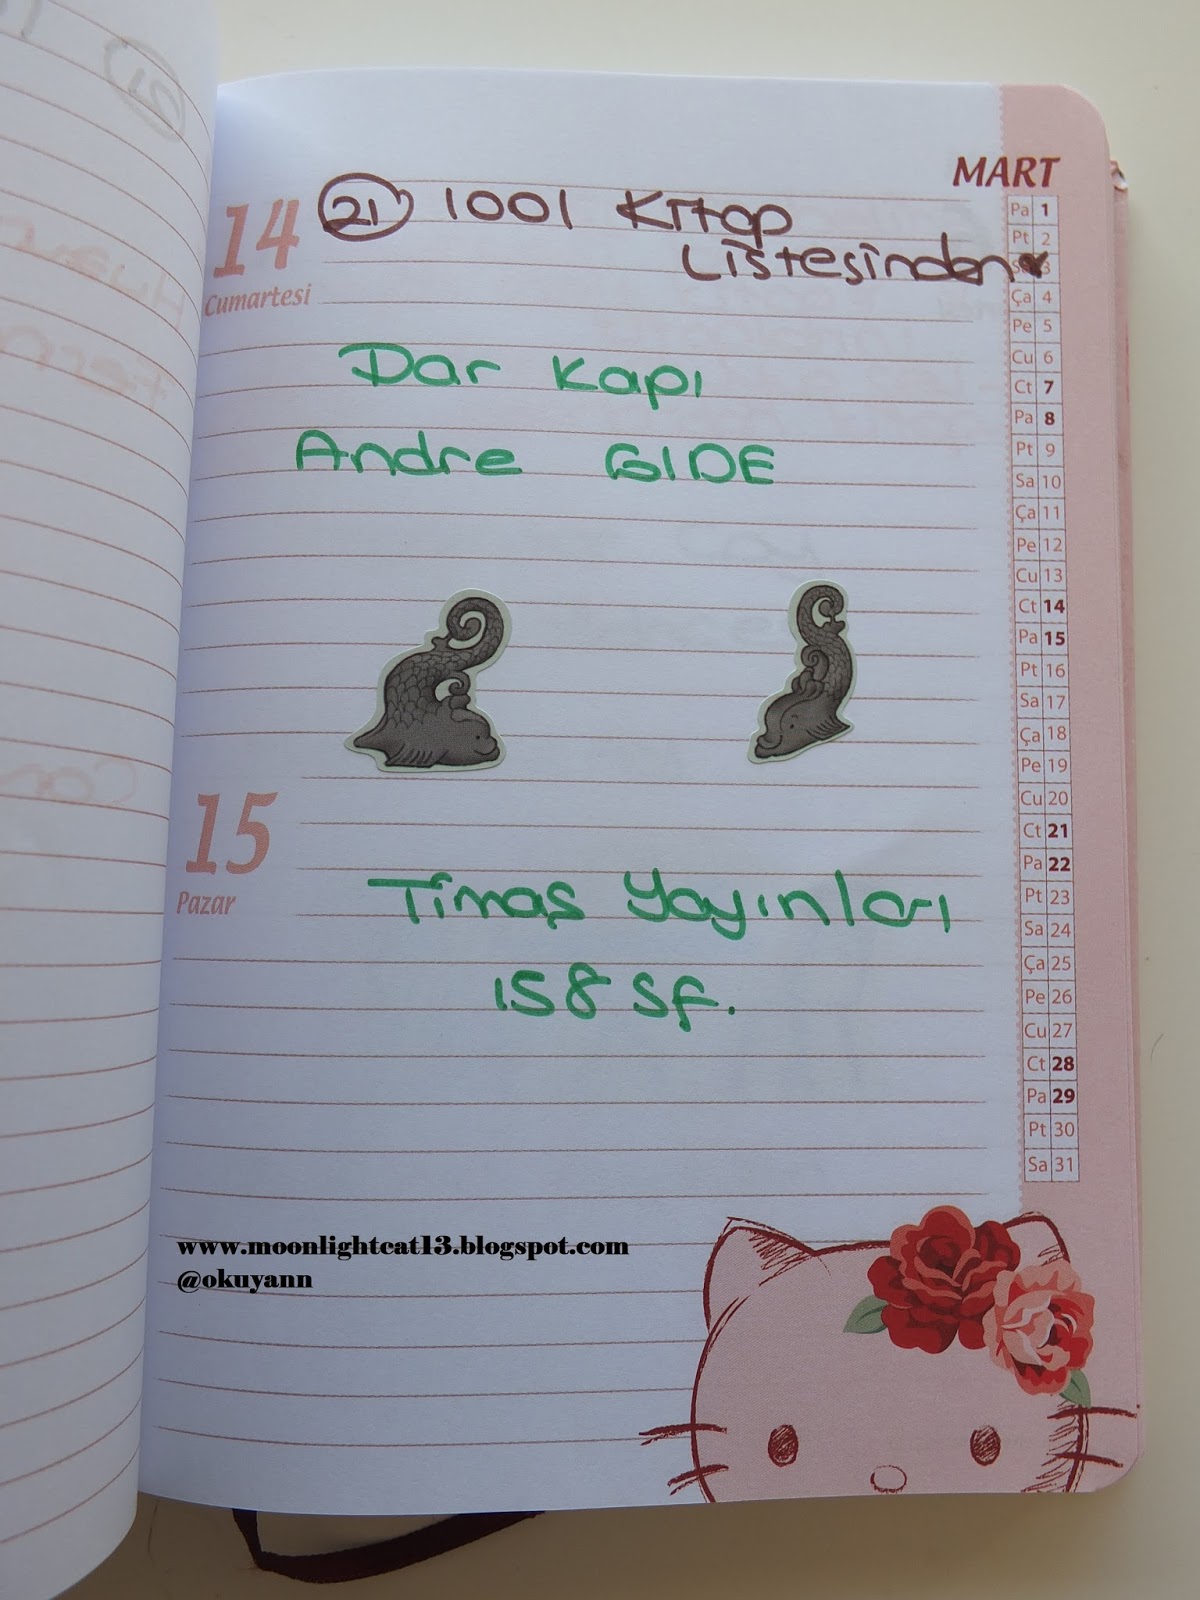 MART
14
Cumartesi
21 1001 Kitap
Listesinden
Dar Kapı
Andre GIDE
15
Pazar
Timaş Yayınları
158 sf.
Pa 1
Pt 2
3
Ça 4
Pe 5
Cu 6
Ct 7
Pa 8
Pt 9
Sa 10
Ça 11
Pe 12
Cu 13
Ct 14
Pa 15
Pt 16
Sa 17
Ça 18
Pe 19
Cu 20
Ct 21
Pa 22
Pt 23
Sa 24
Ça 25
Pe 26
Cu 27
Ct 28
Pa 29
Pt 30
Sa 31
www.moonlightcat13.blogspot.com
@okuyann